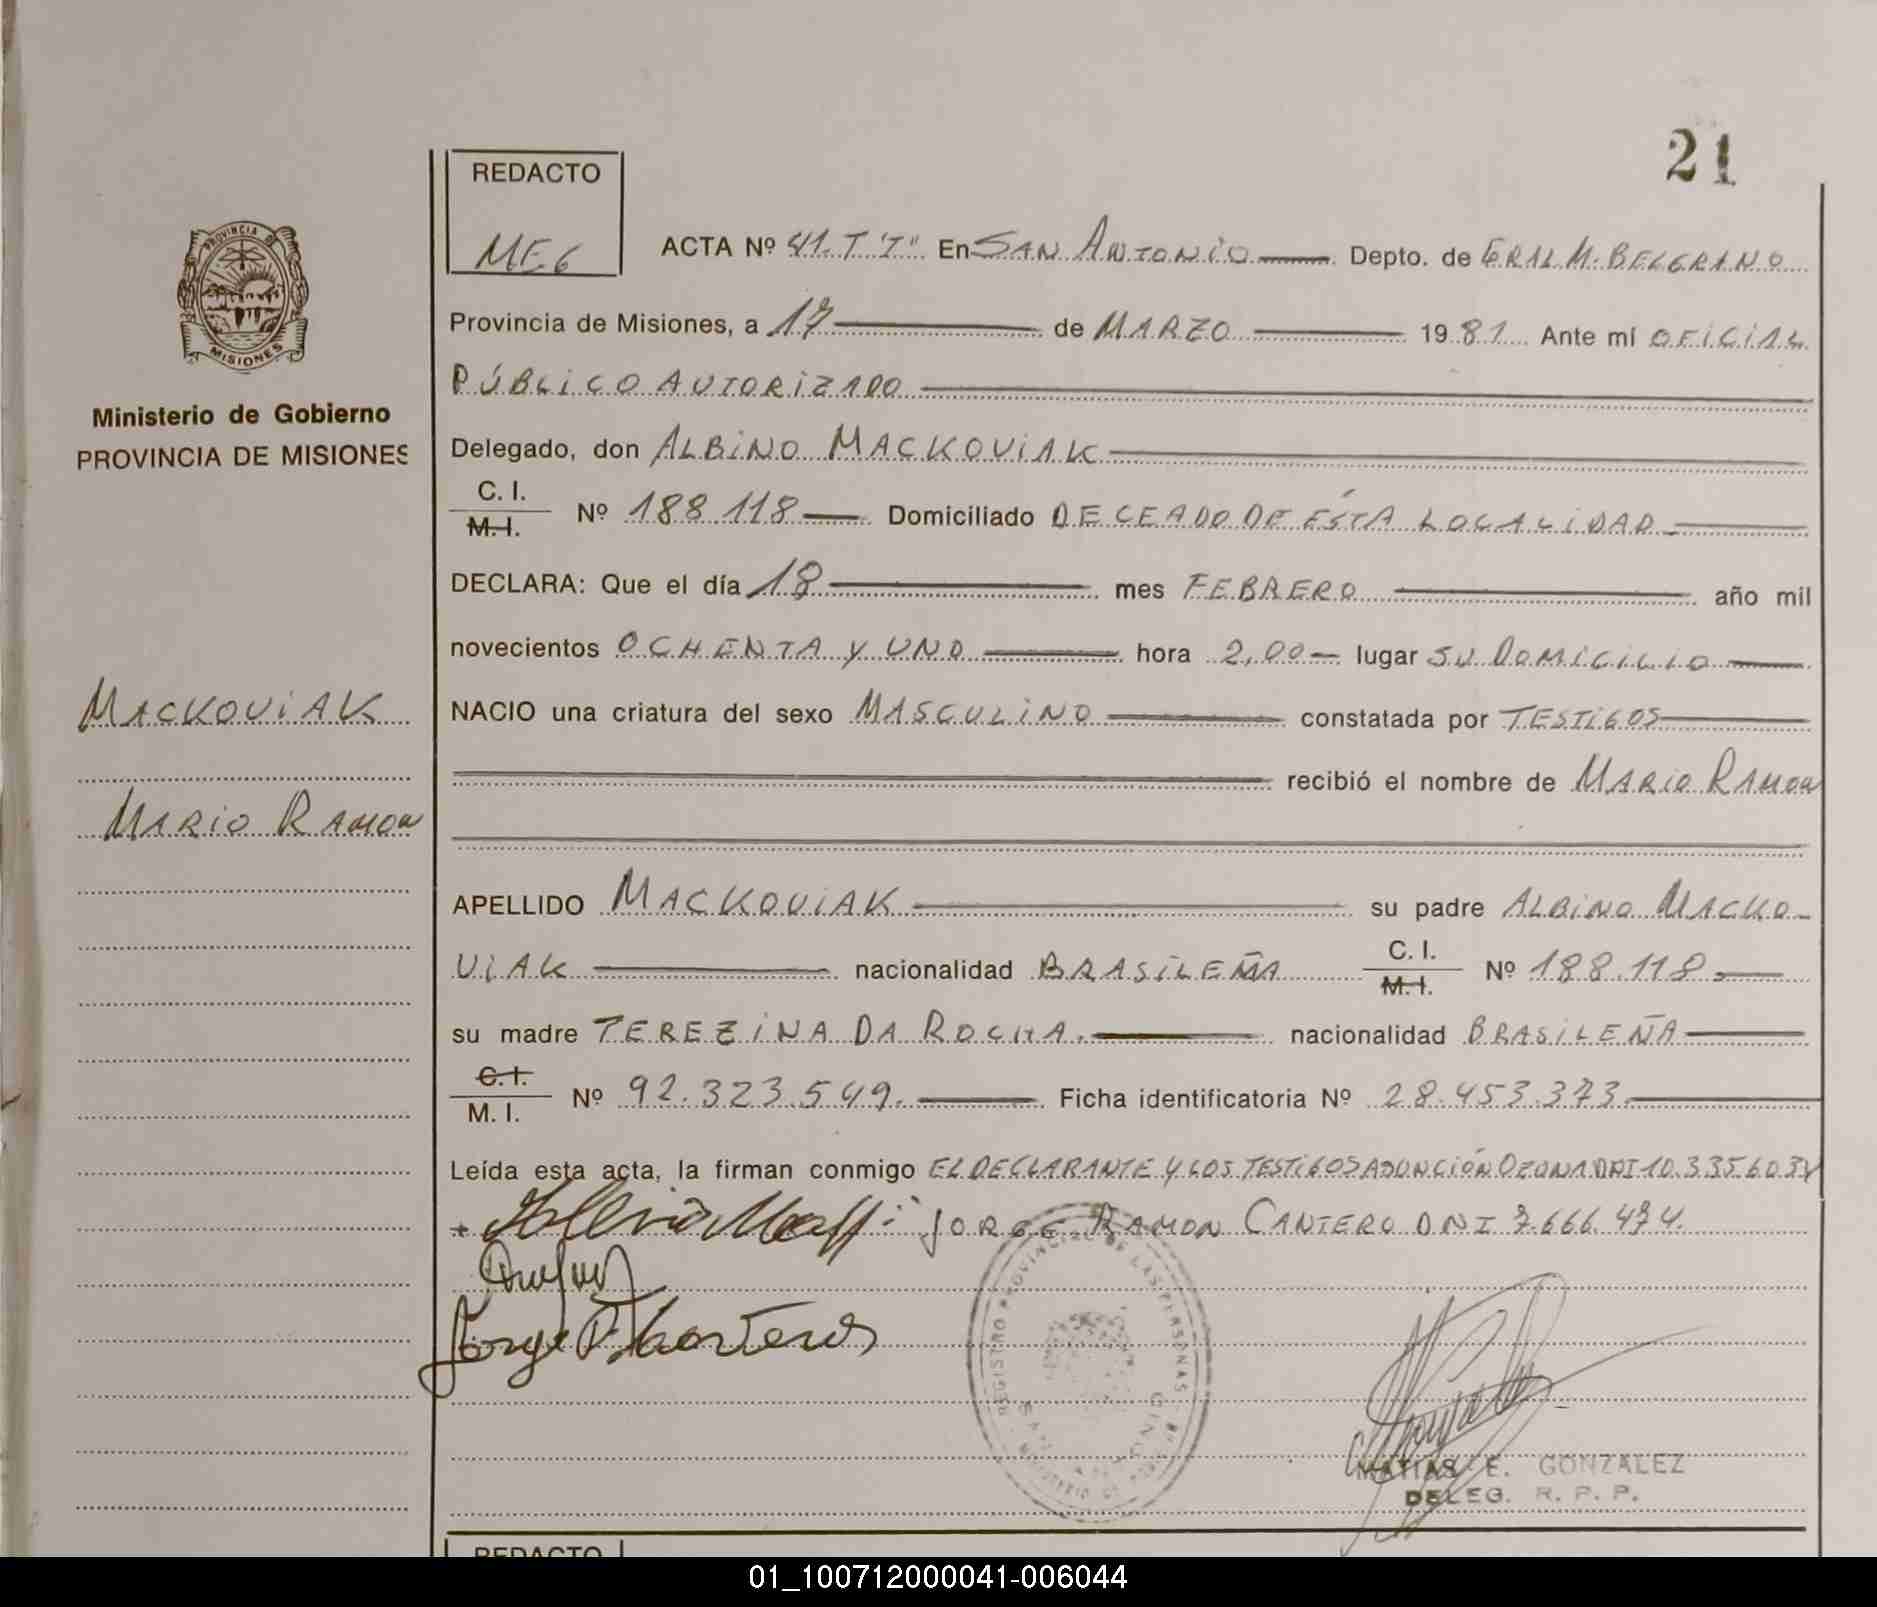 21
REDACTO
MEG
ACTA Nº 41.T."I" En SAN ANTONIO Depto. de GRAL M. BELGRANO
PROVINCIA DE
MISIONES
Provincia de Misiones, a 17 de MARZO 1981 Ante mí OFICIAL
PÚBLICO AUTORIZADO
Ministerio de Gobierno
PROVINCIA DE MISIONES
Delegado, don ALBINO MACKOVIAK
C. I.
M. I.
Nº 188.118 Domiciliado DECEADO DE ÉSTA LOCALIDAD
DECLARA: Que el día 18 mes FEBRERO año mil
novecientos OCHENTA Y UNO hora 2,00 lugar SU DOMICILIO
MACKOVIAK
NACIO una criatura del sexo MASCULINO constatada por TESTIGOS
recibió el nombre de MARIO RAMON
MARIO RAMON
APELLIDO MACKOVIAK su padre ALBINO MACKO-
VIAK nacionalidad BRASILEÑA C. I. M. I. Nº 188.118
su madre TEREZINA DA ROCHA. nacionalidad BRASILEÑA
C. I.
M. I.
Nº 92.323.549. Ficha identificatoria Nº 28.453.373
Leída esta acta, la firman conmigo EL DECLARANTE Y LOS TESTIGOS ASUNCIÓN OZUNA DNI 10.335.603 Y
JORGE RAMON CANTERO DNI 7.666.474.
REGISTRO PROVINCIAL DE LAS PERSONAS
MATIAS E. GONZALEZ
DELEG. R. P. P.
REDACTO
01_100712000041-006044